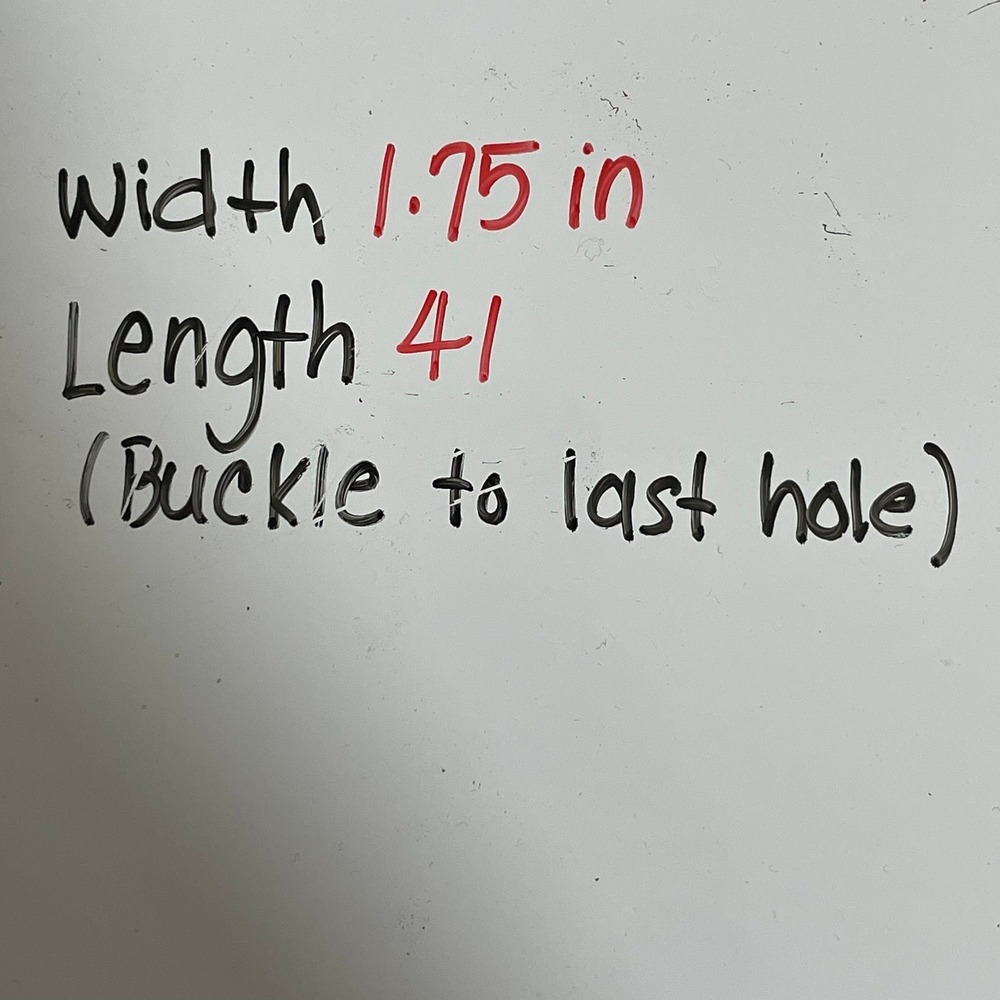 Width 1.75 in
Length 41
(Buckle to last hole)